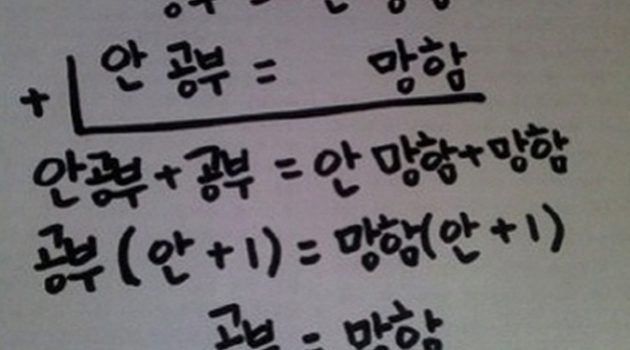 공부 = 안 망함
+ 안 공부 = 망함
안공부 + 공부 = 안 망함 + 망함
공부 (안 + 1) = 망함(안 + 1)
공부 = 망함